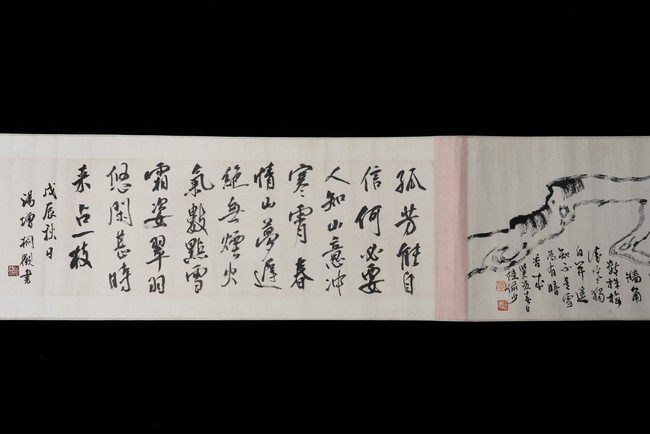 牆角
數枝梅
凌寒獨
自開遙
知不是雪
為有暗
香來
陸儼少
孤芳能自
信何必要
人知山意冲
寒霄春
情山夢遲
絕無煙火
氣數點雪
霜姿翠羽
悠閑甚時
来占一枝
戊辰秋日
湯增桐敬書